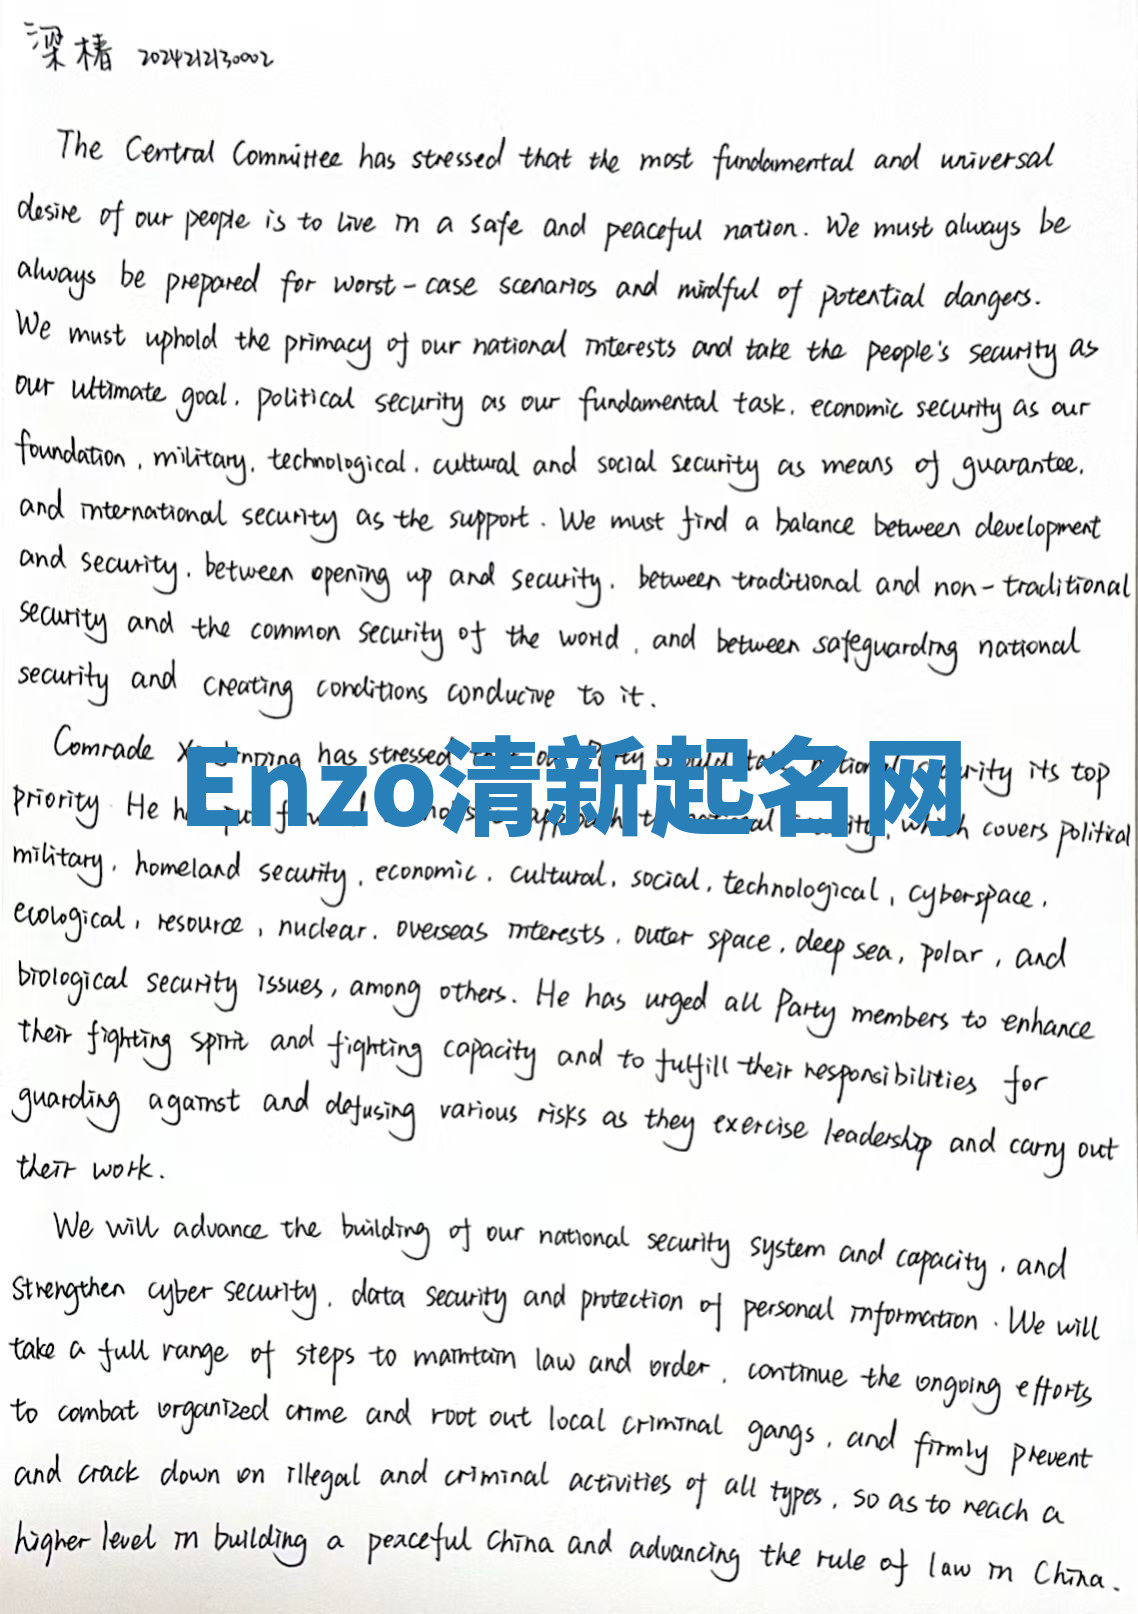 梁椿 2024212130002
The Central Committee has stressed that the most fundamental and universal
desire of our people is to live in a safe and peaceful nation. We must always be
always be prepared for worst-case scenarios and mindful of potential dangers.
We must uphold the primacy of our national interests and take the people's security as
our ultimate goal, political security as our fundamental task, economic security as our
foundation, military, technological, cultural and social security as means of guarantee,
and international security as the support. We must find a balance between development
and security, between opening up and security, between traditional and non-traditional
security and the common security of the world, and between safeguarding national
security and creating conditions conducive to it.
Comrade has stressed our Party national security its top
priority He Enzo清新起名网 which covers political
military, homeland security, economic, cultural, social, technological, cyberspace,
ecological, resource, nuclear, overseas interests, outer space, deep sea, polar, and
biological security issues, among others. He has urged all Party members to enhance
their fighting spirit and fighting capacity and to fulfill their responsibilities for
guarding against and defusing various risks as they exercise leadership and carry out
their work.
We will advance the building of our national security system and capacity, and
strengthen cyber security, data security and protection of personal information. We will
take a full range of steps to maintain law and order, continue the ongoing efforts
to combat organized crime and root out local criminal gangs, and firmly prevent
and crack down on illegal and criminal activities of all types, so as to reach a
higher level in building a peaceful China and advancing the rule of law in China.